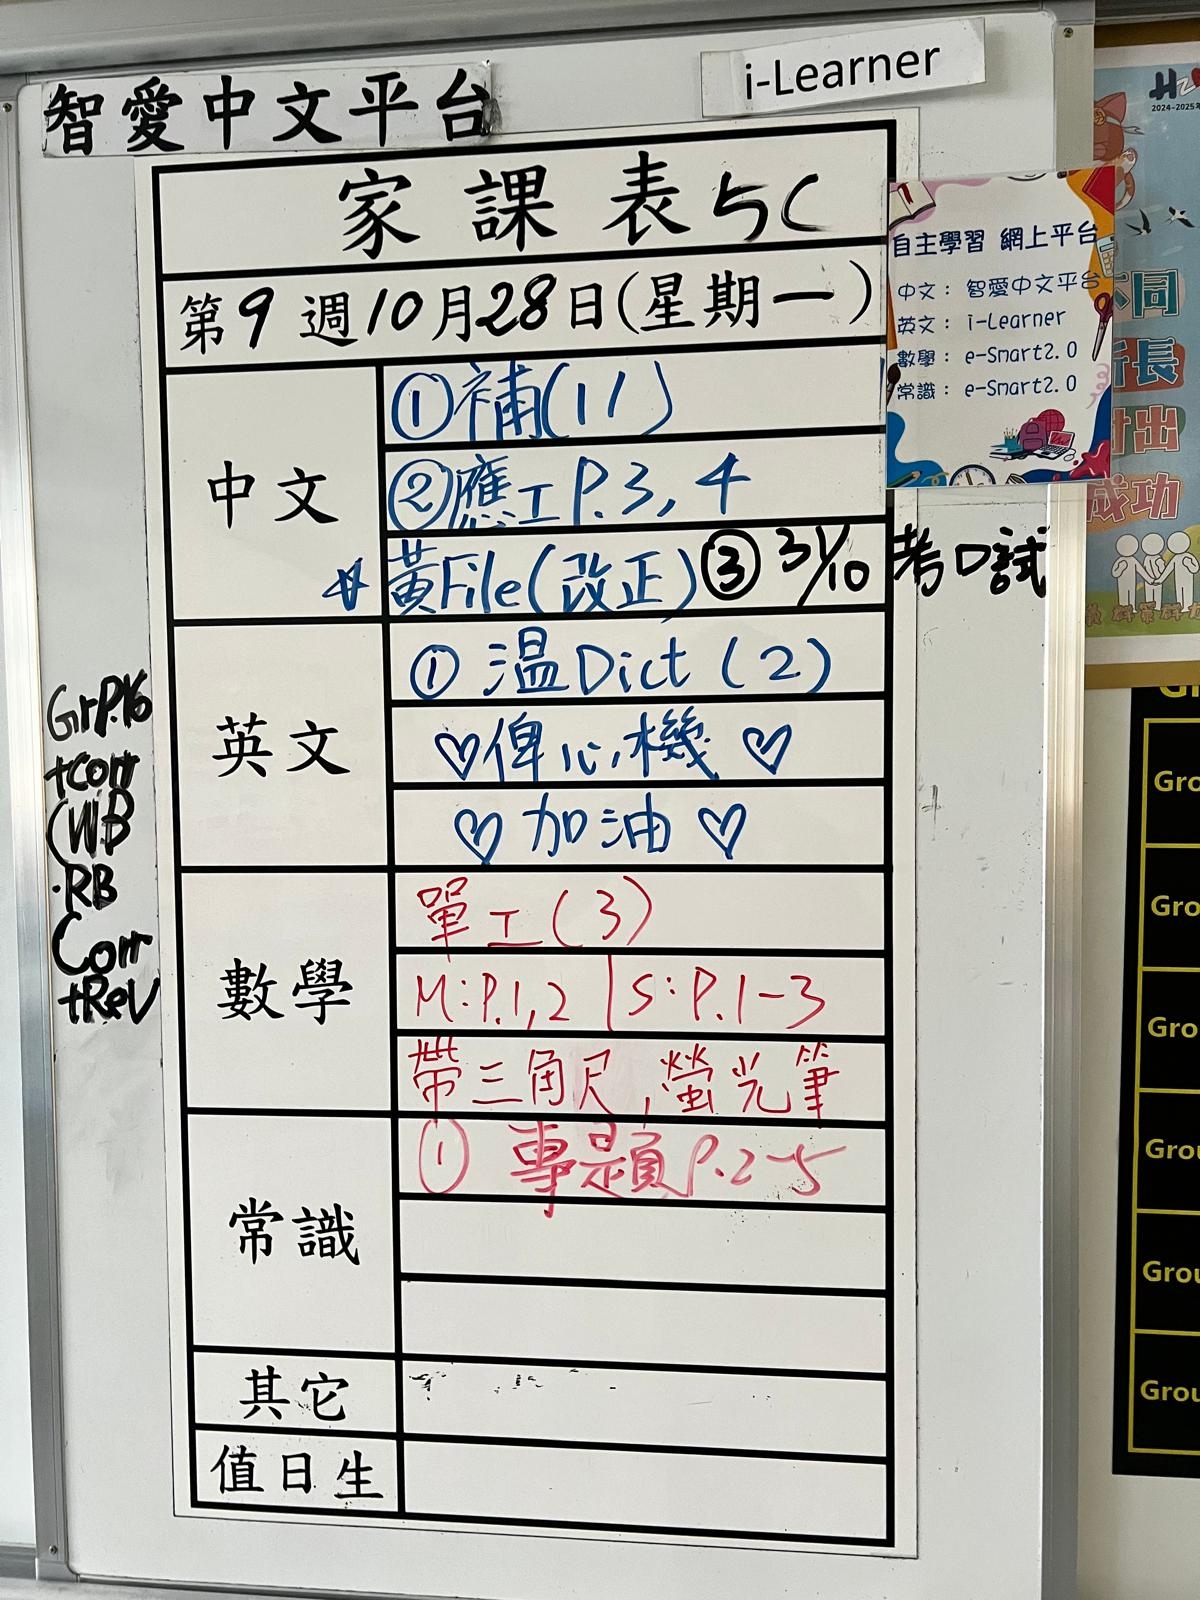 智愛中文平台
i-Learner
家課表 5C
第9週10月28日(星期一)
中文
①補(11)
②應工P.3,4
黃File(改正)③31/10考口試
英文
① 溫Dict(2)
♡俾心機♡
♡加油♡
GrP.16
+corr
(WB
·RB
Corr
+Rev
數學
單工(3)
M:P.1,2 | S:P.1-3
帶三角尺,螢光筆
常識
① 專題P.2-5
其它
值日生
自主學習 網上平台
中文: 智愛中文平台
英文: i-Learner
數學: e-Smart2.0
常識: e-Smart2.0
2024-2025
不同
所長
付出
成功
Gro
Gro
Gro
Grou
Grou
Grou